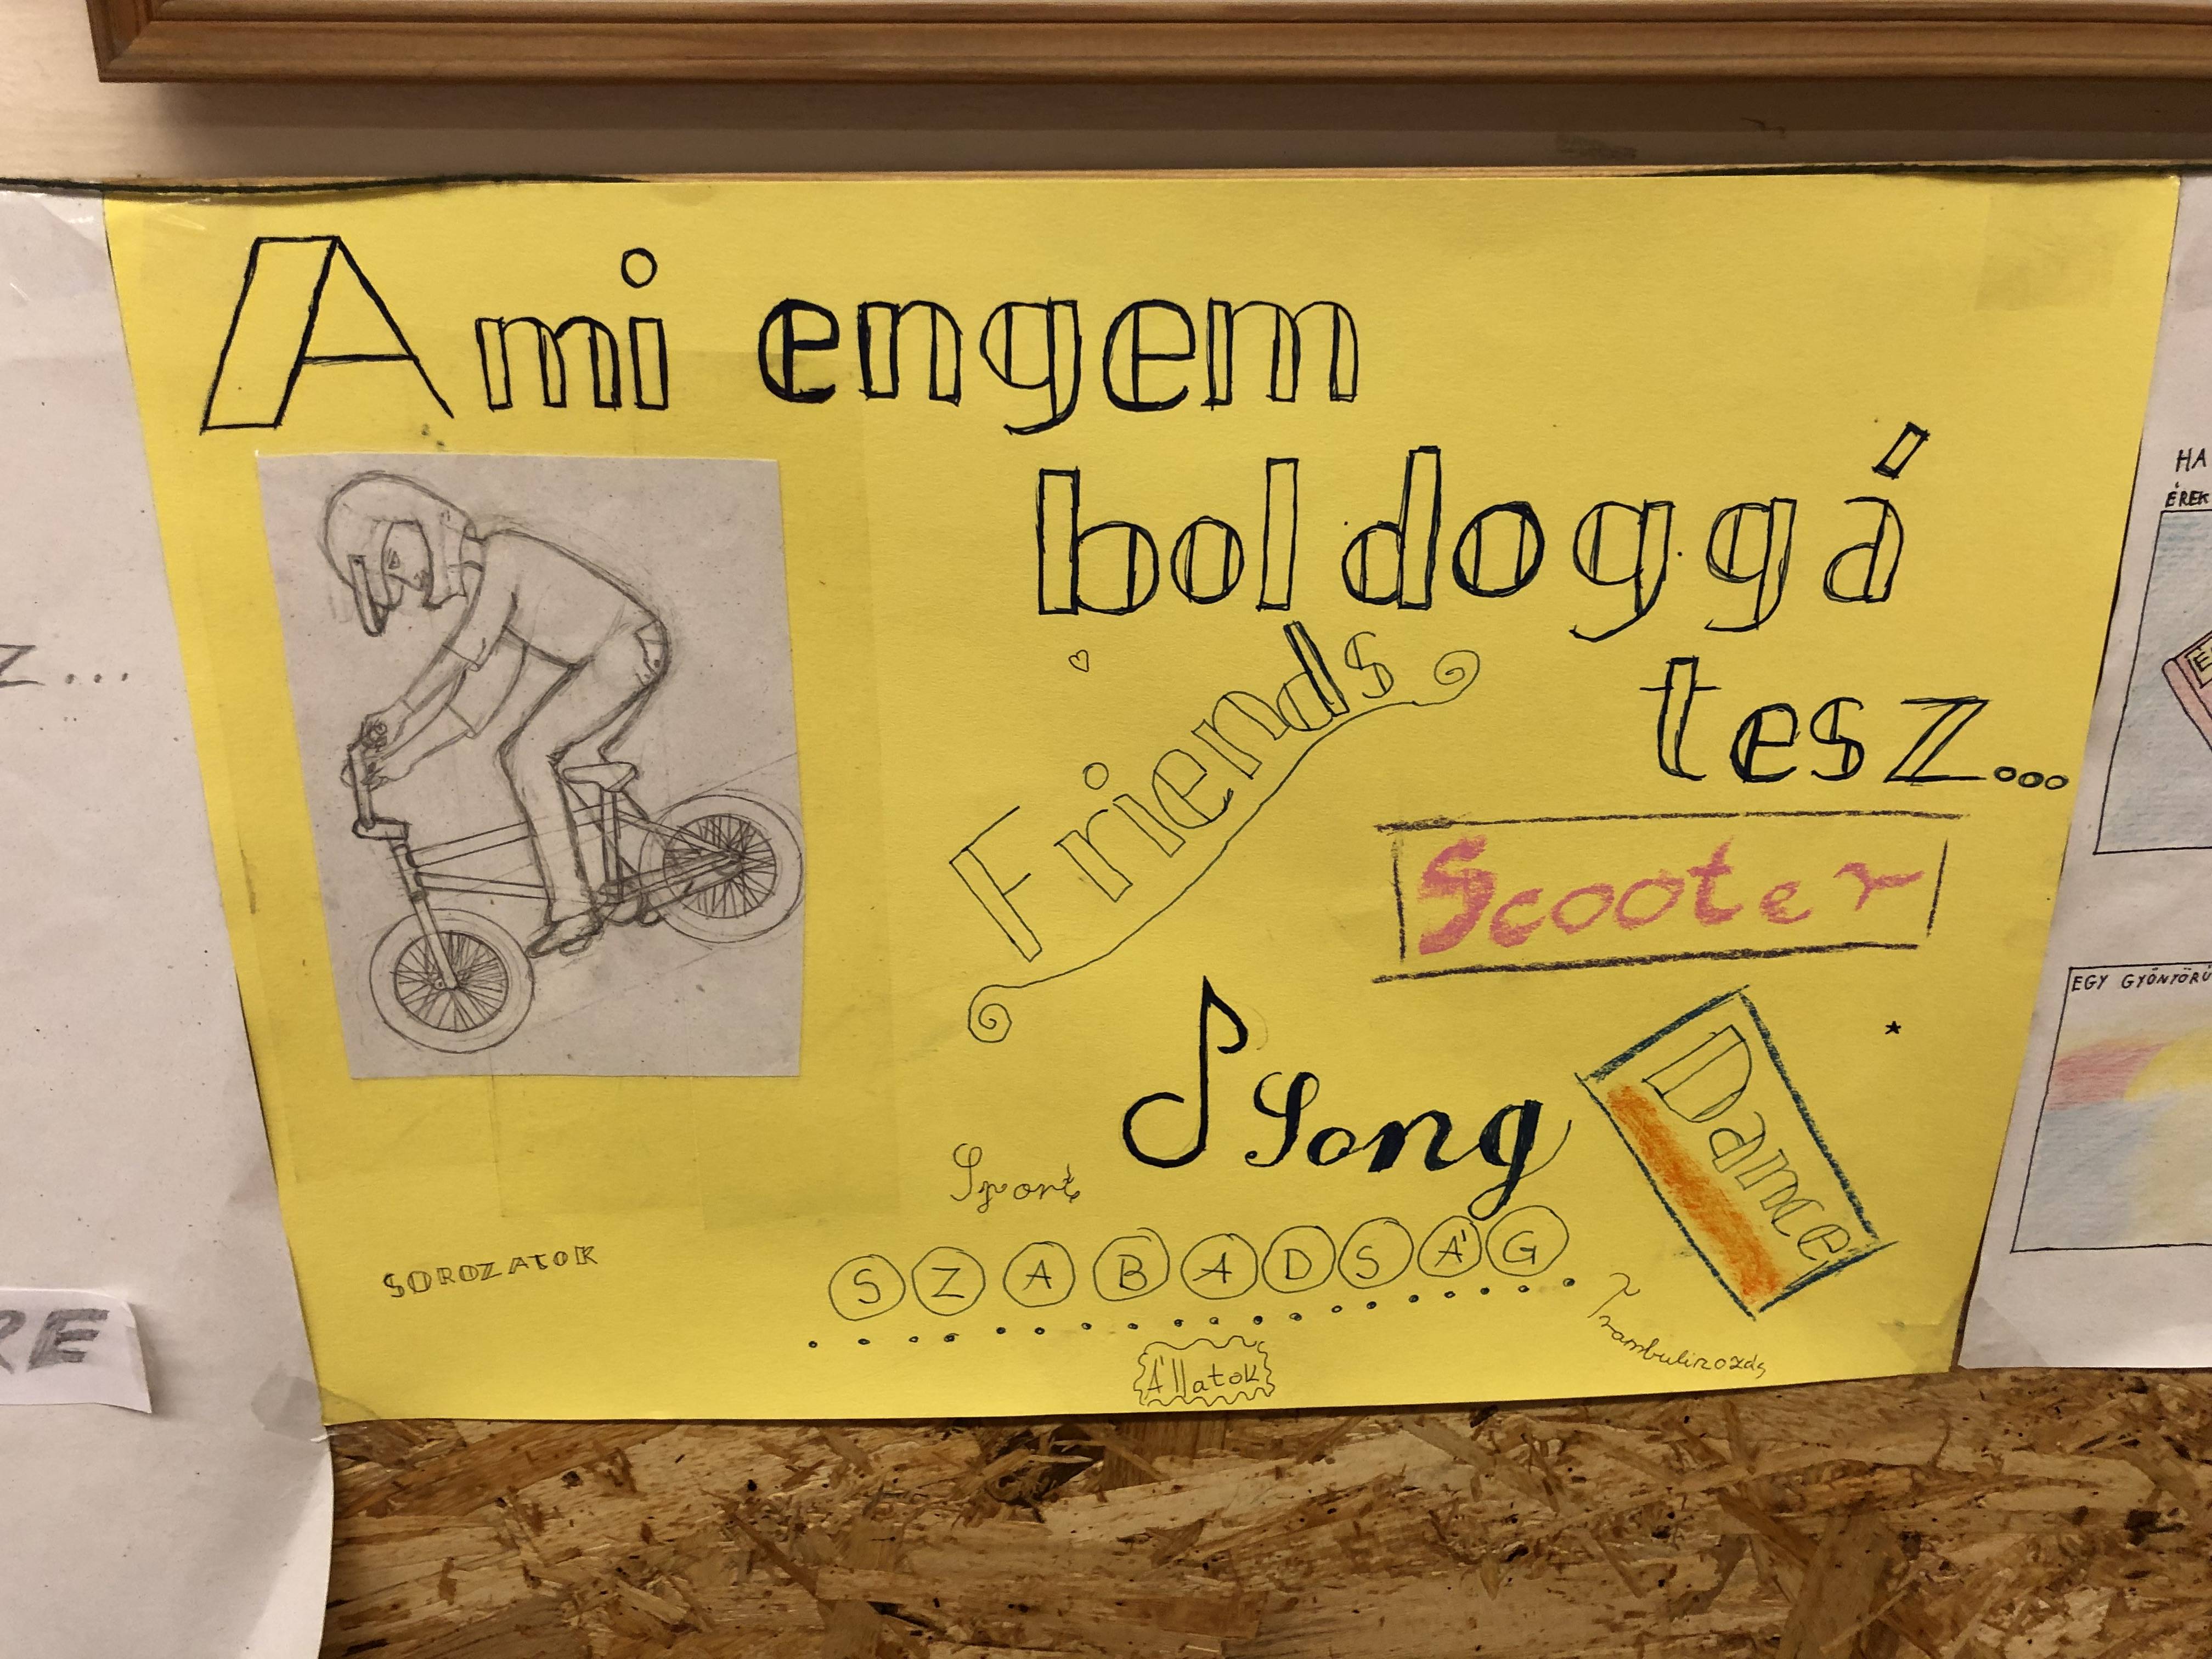 Ami engem
boldoggá
tesz...
Friends
Scooter
Song
Dance
Sport
SZABADSÁG
SOROZATOK
Állatok
Trambulinozás
Z...
RE
HA
ÉREK
EGY GYÖNYÖRŰ